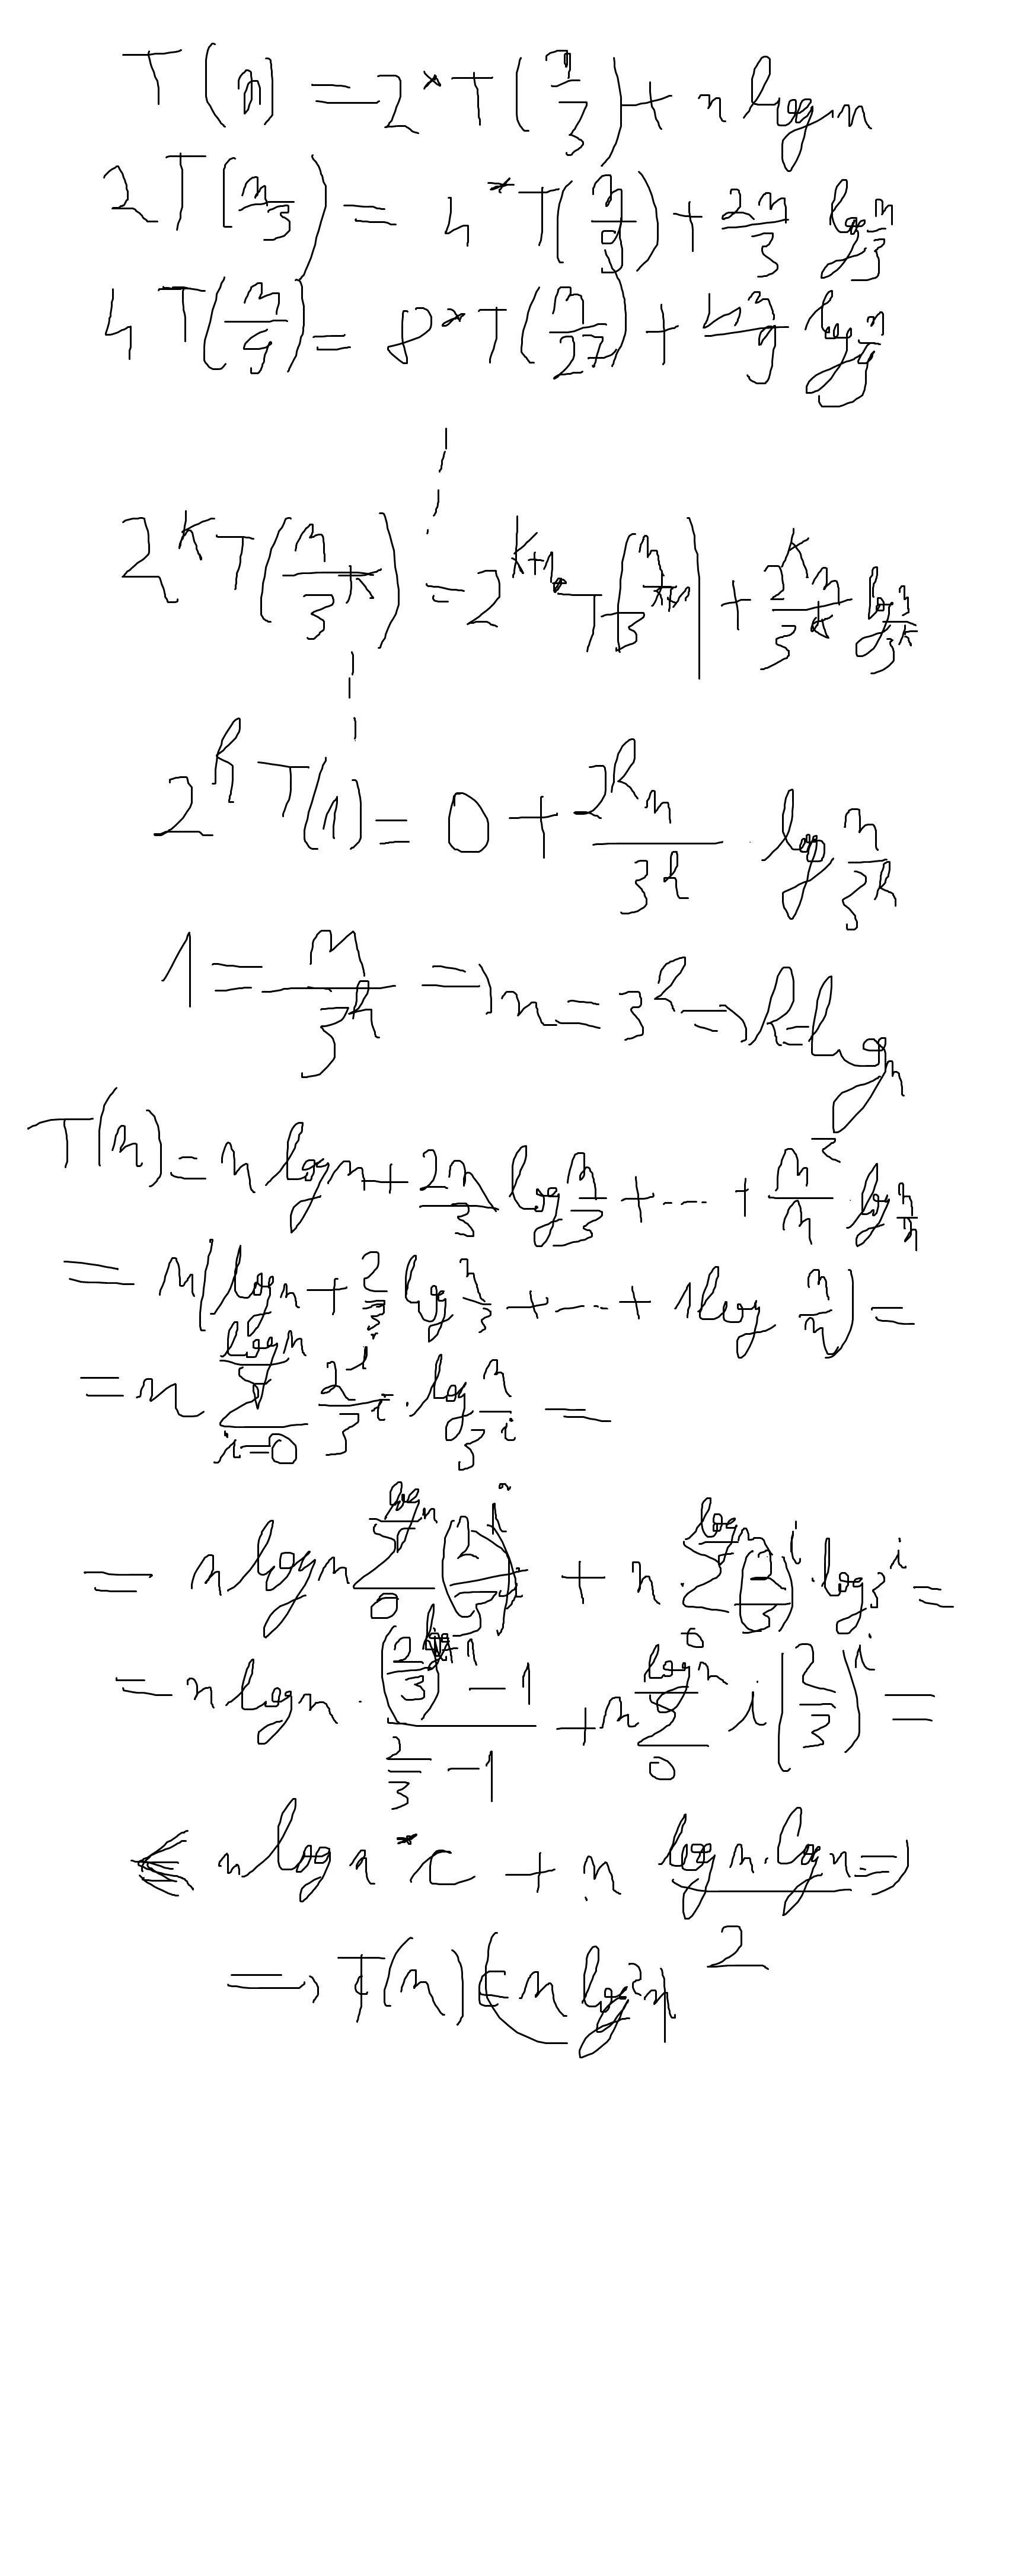 T(n) = 2*T(n/3) + n log n
2T(n/3) = 4*T(n/9) + 2n/3 log n/3
4T(n/9) = 8*T(n/27) + 4n/9 log n/9
2^k T(n/3^k) = 2^(k+1) T(n/3^(k+1)) + 2^k n/3^k log n/3^k
2^h T(1) = 0 + 2^h n/3^h · log n/3^h
1 = n/3^h => n = 3^h => h = log n
T(n) = n log n + 2n/3 log n/3 + ... + n^2/n · log n/n
= n(log n + 2/3 log n/3 + ... + 1 log n/n) =
= n Σ_{i=0}^{log n} 2^i/3^i · log n/3^i =
= n log n Σ_0^{log n} (2/3)^i + n · Σ_0^{log n} (2/3)^i · log 3^i =
= n log n · ((2/3)^(log n+1) - 1)/(2/3 - 1) + n Σ_0^{log n} i(2/3)^i =
≤ n log n * c + n (log n · log n)/2 =>
=> T(n) ∈ (n log^2 n)